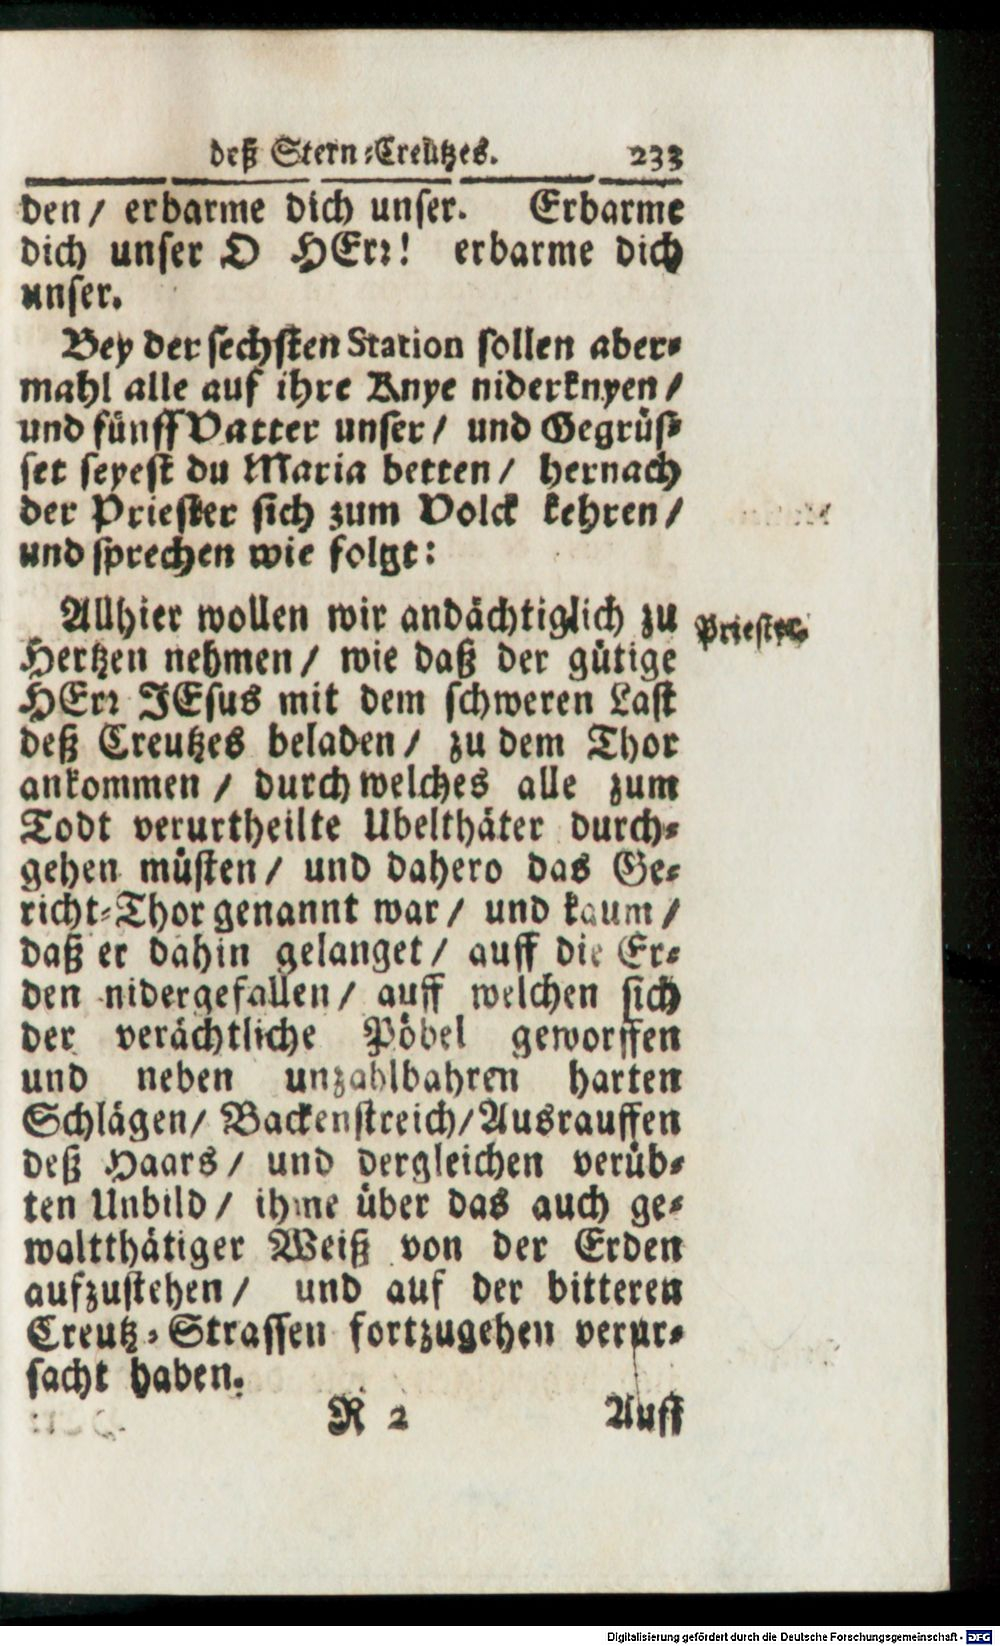 deß Stern-Creutzes. 233
den/ erbarme dich unser. Erbarme
dich unser O HErr! erbarme dich
unser.
Bey der sechsten Station sollen aber-
mahl alle auf ihre Knye niderknyen/
und fünff Vatter unser/ und Gegrüs-
set seyest du Maria betten/ hernach
der Priester sich zum Volck kehren/
und sprechen wie folgt:
Allhier wollen wir andächtiglich zu
Priester.
Hertzen nehmen/ wie daß der gütige
HErr JEsus mit dem schweren Last
deß Creutzes beladen/ zu dem Thor
ankommen/ durch welches alle zum
Todt verurtheilte Ubelthäter durch-
gehen müsten/ und dahero das Ge-
richt-Thor genannt war/ und kaum/
daß er dahin gelanget/ auff die Er-
den nidergefallen/ auff welchen sich
der verächtliche Pöbel geworffen
und neben unzahlbahren harten
Schlägen/ Backenstreich/ Ausrauffen
deß Haars/ und dergleichen verüb-
ten Unbild/ ihme über das auch ge-
waltthätiger Weiß von der Erden
aufzustehen/ und auf der bitteren
Creutz-Strassen fortzugehen verur-
sacht haben.
R 2 Auff
Digitalisierung gefördert durch die Deutsche Forschungsgemeinschaft - DFG